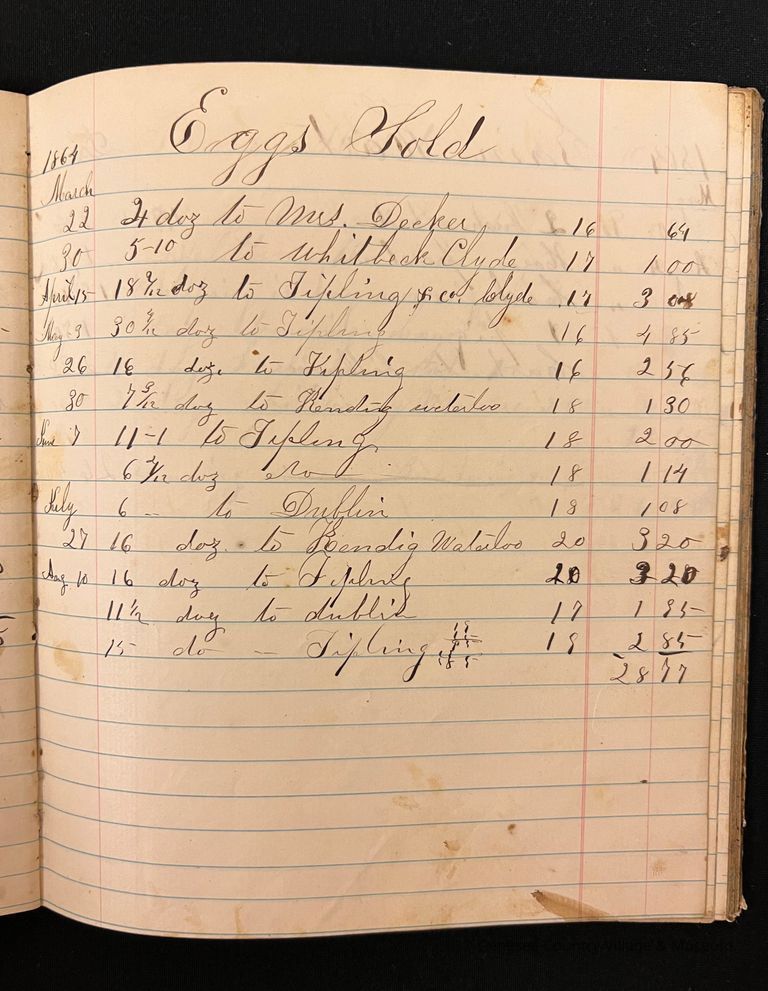 Eggs Sold
1864
March
22 4 doz to Mrs. Decker 16 64
30 5-10 to Whitbeck Clyde 17 1 00
April 15 18 2/12 doz to Tipling & co. Clyde 17 3 08
May 3 30 4/12 doz to Tipling 16 4 85
26 16 doz. to Tipling 16 2 56
30 7 3/12 doz to Kendig waterloo 18 1 30
June 7 11-1 to Tipling 18 2 00
6 4/12 doz do 18 1 14
July 6 -- to Dublin 18 1 08
27 16 doz. to Kendig Waterloo 20 3 20
Aug 10 16 doz to Tipling 20 3 20
11 1/2 doz to dublin 17 1 95
15 do - Tipling 19 2 85
28 77